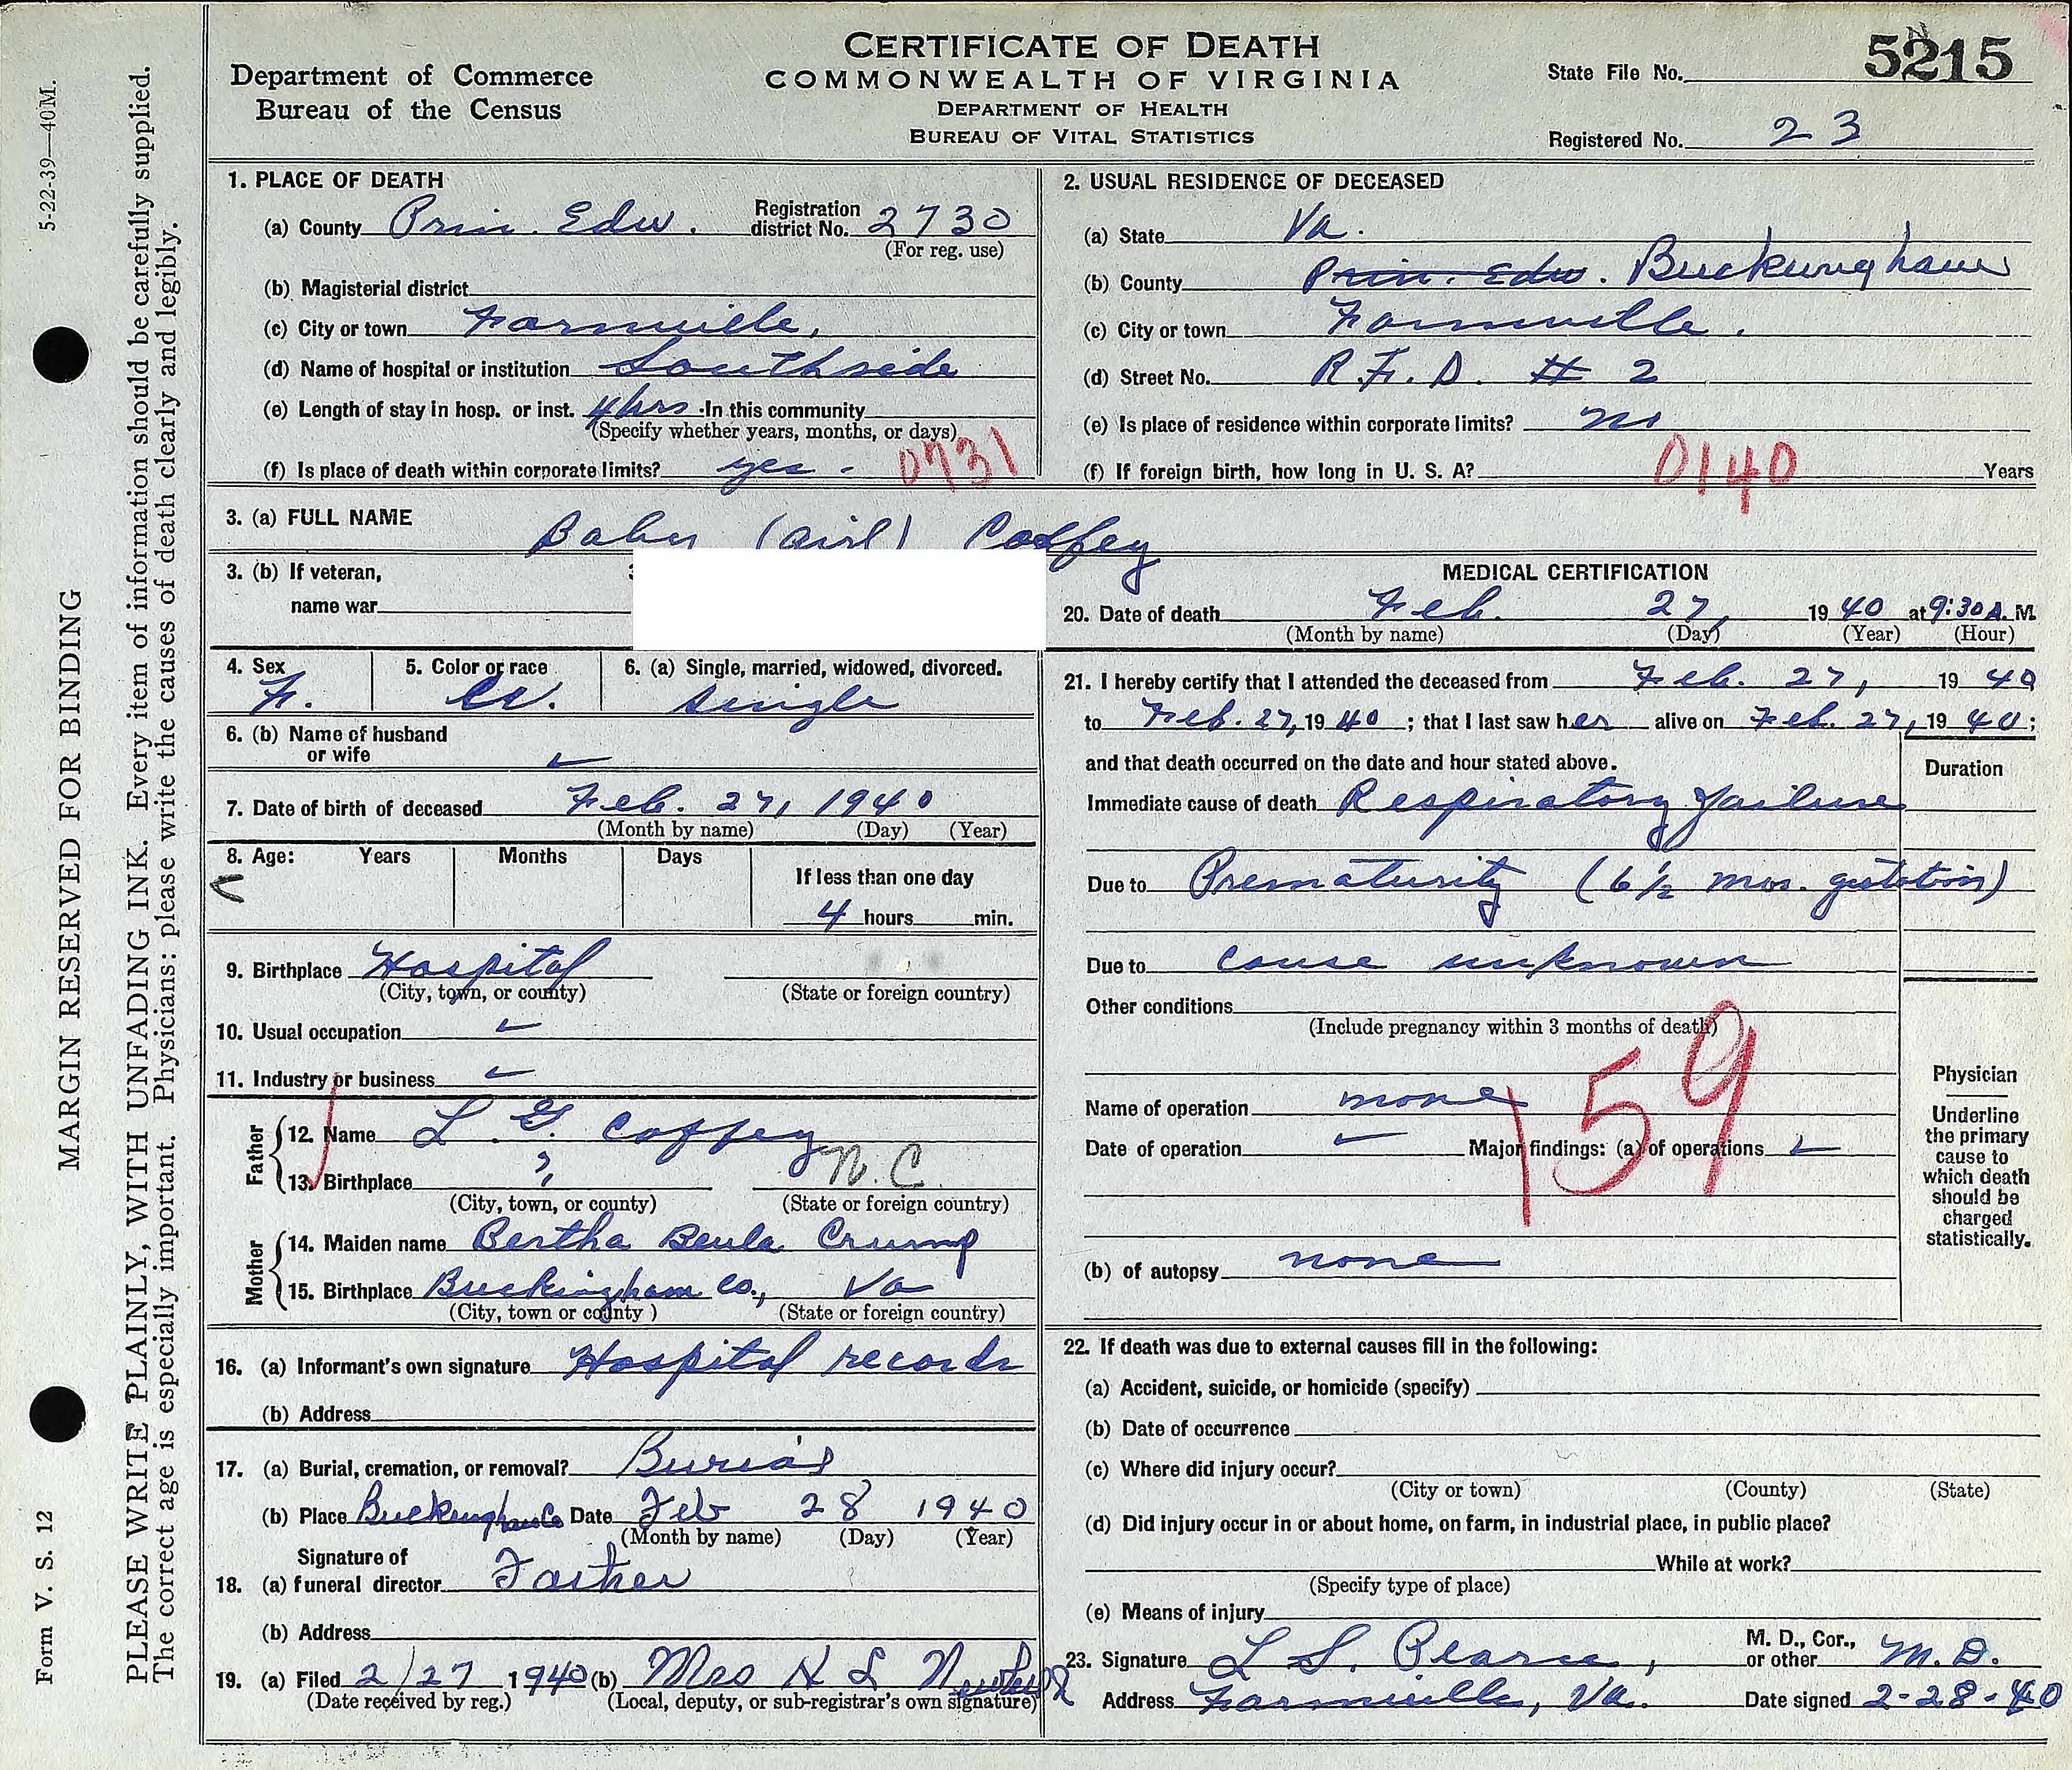 CERTIFICATE OF DEATH
COMMONWEALTH OF VIRGINIA
DEPARTMENT OF HEALTH
BUREAU OF VITAL STATISTICS
Department of Commerce
Bureau of the Census
State File No. 5215
Registered No. 23
5-22-39—40M.
MARGIN RESERVED FOR BINDING
PLEASE WRITE PLAINLY, WITH UNFADING INK. Every item of information should be carefully supplied.
The correct age is especially important. Physicians: please write the causes of death clearly and legibly.
Form V. S. 12
1. PLACE OF DEATH
(a) County Prin. Edw. Registration district No. 2730
(For reg. use)
(b) Magisterial district
(c) City or town Farmville,
(d) Name of hospital or institution Southside
(e) Length of stay in hosp. or inst. 4 hrs. In this community
(Specify whether years, months, or days)
(f) Is place of death within corporate limits? yes - 0731
2. USUAL RESIDENCE OF DECEASED
(a) State Va.
(b) County Prin. Edw. Buckingham
(c) City or town Farmville.
(d) Street No. R.F.D. # 2
(e) Is place of residence within corporate limits? no
(f) If foreign birth, how long in U. S. A? 0140 Years
3. (a) FULL NAME Baby (Girl) Coffey
3. (b) If veteran,
name war
4. Sex F.
5. Color or race
6. (a) Single, married, widowed, divorced. Single
6. (b) Name of husband
or wife ✓
7. Date of birth of deceased Feb. 27, 1940
(Month by name) (Day) (Year)
8. Age: Years Months Days If less than one day
4 hours min.
9. Birthplace Hospital
(City, town, or county) (State or foreign country)
10. Usual occupation ✓
11. Industry or business ✓
Father
12. Name L. G. Coffey
13. Birthplace ? N.C.
(City, town, or county) (State or foreign country)
Mother
14. Maiden name Bertha Beula Crump
15. Birthplace Buckingham Co., Va
(City, town or county ) (State or foreign country)
16. (a) Informant's own signature Hospital records
(b) Address
17. (a) Burial, cremation, or removal? Burial
(b) Place Buckingham Co Date Feb 28 1940
(Month by name) (Day) (Year)
Signature of
18. (a) funeral director Father
(b) Address
19. (a) Filed 2/27 1940 (b) Mrs H L
(Date received by reg.) (Local, deputy, or sub-registrar's own signature)
MEDICAL CERTIFICATION
20. Date of death Feb. 27, 1940 at 9:30 A. M.
(Month by name) (Day) (Year) (Hour)
21. I hereby certify that I attended the deceased from Feb. 27, 1940
to Feb. 27, 1940; that I last saw her alive on Feb. 27, 1940;
and that death occurred on the date and hour stated above.
Duration
Immediate cause of death Respiratory failure
Due to Prematurity (6½ mos. gestation)
Due to cause unknown
Other conditions
(Include pregnancy within 3 months of death)
159
Name of operation none
Date of operation ✓ Major findings: (a) of operations ✓
(b) of autopsy none
Physician
Underline
the primary
cause to
which death
should be
charged
statistically.
22. If death was due to external causes fill in the following:
(a) Accident, suicide, or homicide (specify)
(b) Date of occurrence
(c) Where did injury occur?
(City or town) (County) (State)
(d) Did injury occur in or about home, on farm, in industrial place, in public place?
While at work?
(Specify type of place)
(e) Means of injury
23. Signature L S. Pearce, M. D., Cor., or other M.D.
Address Farmville, Va. Date signed 2-28-40